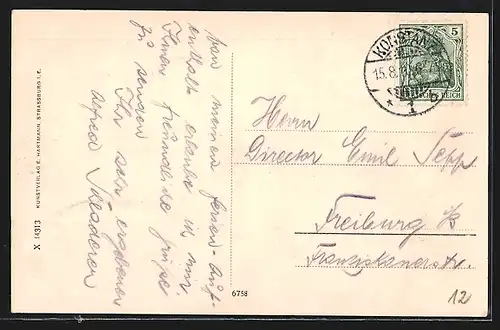 Von meinem Ferien-Auf-
enthalt erlaube ich mir
Ihnen freundliche Grüsse
zu senden
Ihr sehr ergebener
Alfred
KUNSTVERLAG E. HARTMANN, STRASSBURG I. E.
X 14313
KONSTANZ
15.8.
* 1 b
5
DEUTSCHES REICH
Herrn
Director Emil Sepp
Freiburg i/B
Franziskanerstr.
6758
12